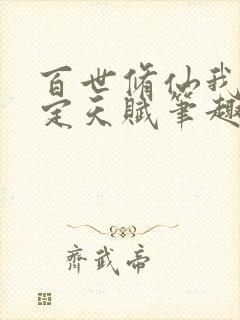 百世脩仙我
定天賦筆趣
齊武帝